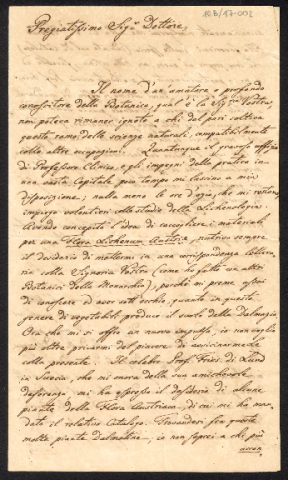 1816/47-002
Pregiatissimo Sig.r Dottore,
Il nome d'un amatore e profondo
conoscitore della Botanica, qual è la Sig.ria Vostra,
non poteva rimaner ignoto a chi del pari coltiva
questo ramo delle scienze naturali, compatibilmente
colle altre occupazioni. Quantunque il gravoso offizio
di Professore Clinico, e gli impegni della pratica in
una vasta Capitale poco tempo mi lascino a mia
disposizione; nulla meno le ore d'ozio, che mi restano,
impiego volentieri collo studio della Lichenologia.
Avendo concepita l'idea di raccogliere i materiali
per una Flora Lichenum Austriae, nutriva sempre
il desiderio di mettermi in una corrispondenza lettera-
ria colla Signoria Vostra (come ho fatto con altri
Botanici della Monarchia), perchè mi preme assai
di conoscere ed aver sott'occhio, quanto in questo
genere di vegetabili produce il suolo della Dalmazia.
Ora che mi si offre un nuovo impulso, io non voglio
più oltre privarmi del piacere di avvicinarmele
colla presente. Il celebre Prof. Fries di Lund
in Svezia, che mi onora della sua amichevole
deferenza, mi ha espresso il desiderio di alcune
piante della Flora Austriaca, di cui mi ha man-
dato il relativo Catalogo. Trovandosi fra queste
molte piante Dalmatine, io non saprei a chi più